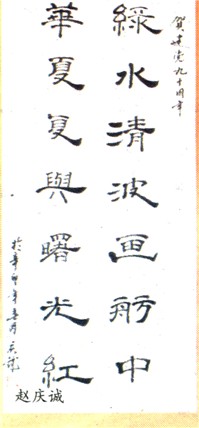 賀建党九十周年
綠水清波画舫中
華夏复興曙光紅
於辛卯年春月庆诚
赵庆诚